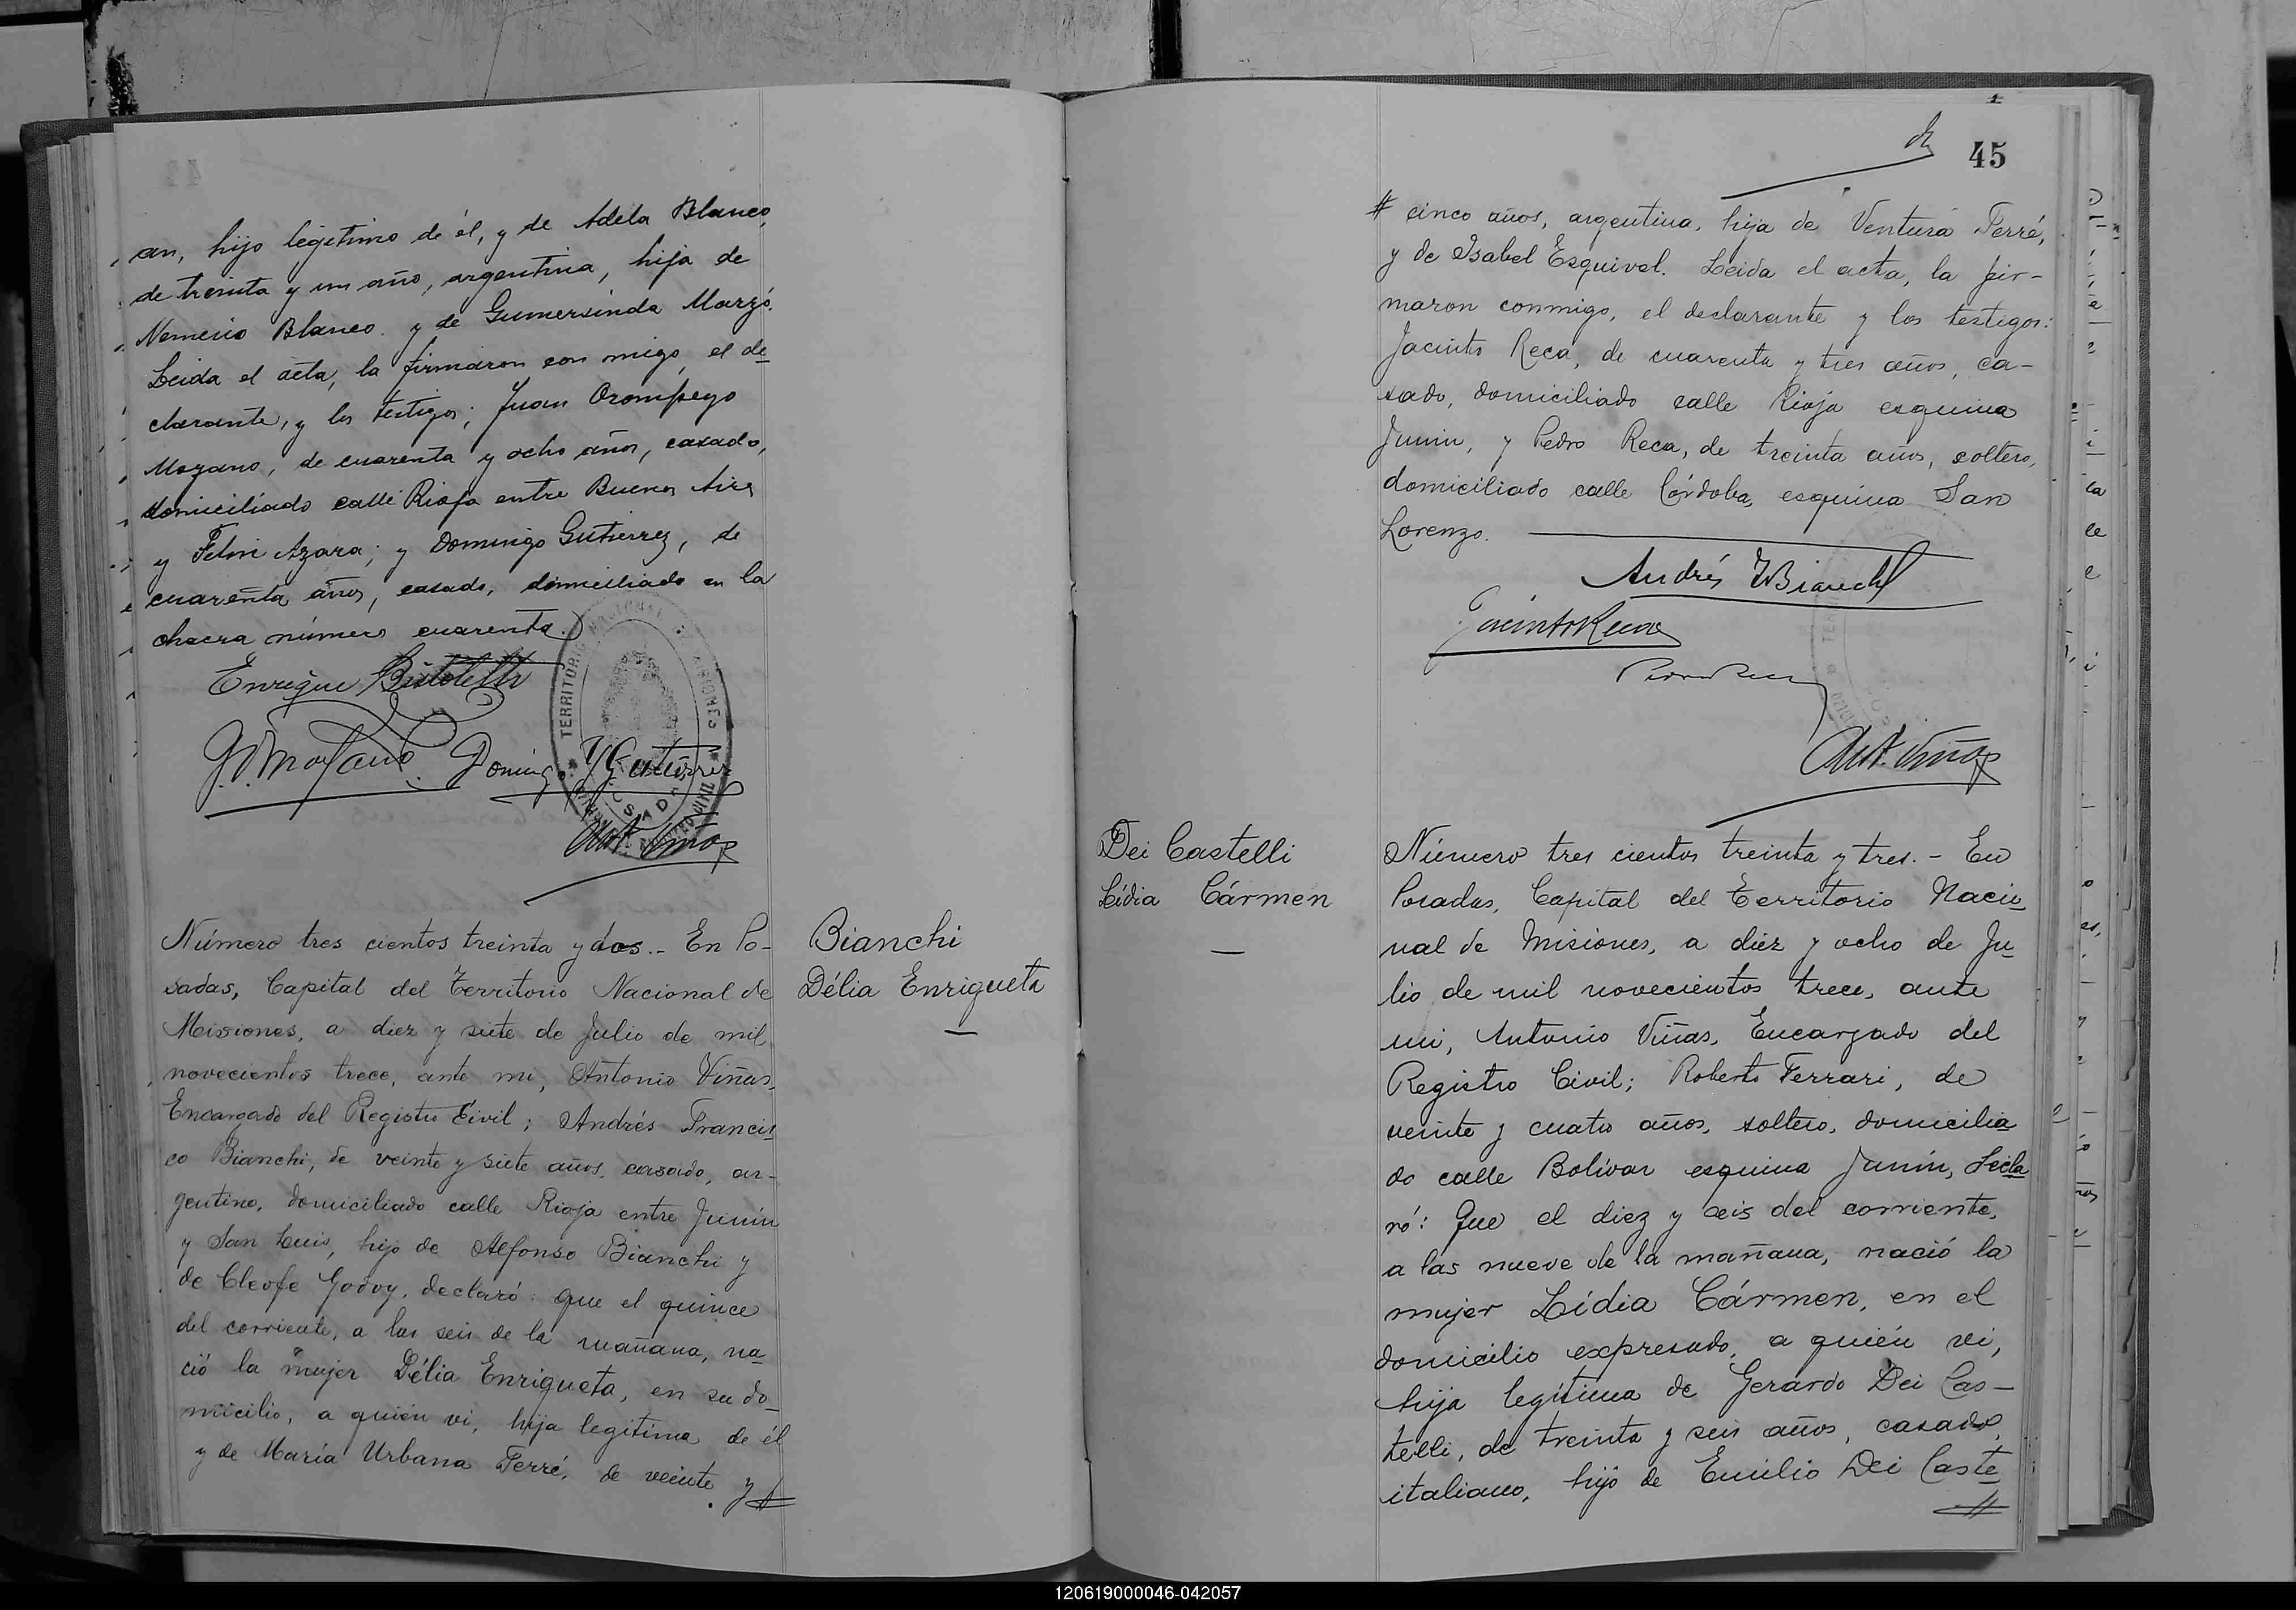 an, hijo legitimo de él, y de Adela Blanco,
de treinta y un año, argentina, hija de
Nemecio Blanco y de Gumersinda Marzó.
Leida el acta, la firmaron con migo, el de
clarante, y los testigos; Juan Orompeyo
Moyano, de cuarenta y ocho años, casado,
domiciliado calle Rioja entre Buenos Aires
y Felix Azara; y Domingo Gutierrez, de
cuarenta años, casado, domiciliado en la
chacra número cuarenta.
Enrique
J. O. Moyano Domingo Gutierrez
TERRITORIO NACIONAL MISIONES
POSADAS
Ant. Viñas
Número tres cientos treinta y dos.- En Po-
sadas, Capital del Territorio Nacional de
Misiones, a diez y siete de Julio de mil
novecientos trece, ante mi, Antonio Viñas,
Encargado del Registro Civil; Andrés Francis
co Bianchi, de veinte y siete años, casado, ar-
gentino, domiciliado calle Rioja entre Junín
y San Luis, hijo de Alfonso Bianchi y
de Cleofe Godoy, declaró: que el quince
del corriente, a las seis de la mañana, na
ció la mujer Délia Enriqueta, en su do
micilio, a quién vi, hija legítima de él
y de María Urbana Ferré, de veinte y #
Bianchi
Délia Enriqueta
45
# cinco años, argentina, hija de Ventura Ferré,
y de Isabel Esquivel. Leida el acta, la fir-
maron conmigo, el declarante y los testigos:
Jacinto Reca, de cuarenta y tres años, ca-
sado, domiciliado calle Rioja esquina
Junin, y Pedro Reca, de treinta años, soltero,
domiciliado calle Córdoba, esquina San
Lorenzo.
Andrés F Bianchi
Jacinto Reca
Pedro Reca
Ant. Viñas
Dei Castelli
Lídia Cármen
Número tres cientos treinta y tres.- En
Posadas, Capital del Territorio Nacio
nal de Misiones, a diez y ocho de Ju
lio de mil novecientos trece, ante
mi, Antonio Viñas, Encargado del
Registro Civil; Roberto Ferrari, de
veinte y cuatro años, soltero, domicilia
do calle Bolívar esquina Junín, decla
ró: Que el diez y seis del corriente,
a las nueve de la mañana, nació la
mujer Lídia Cármen, en el
domicilio expresado, a quién vi,
hija legítima de Gerardo Dei Cas-
telli, de treinta y seis años, casado,
italiano, hijo de Emilio Dei Caste
#
120619000046-042057